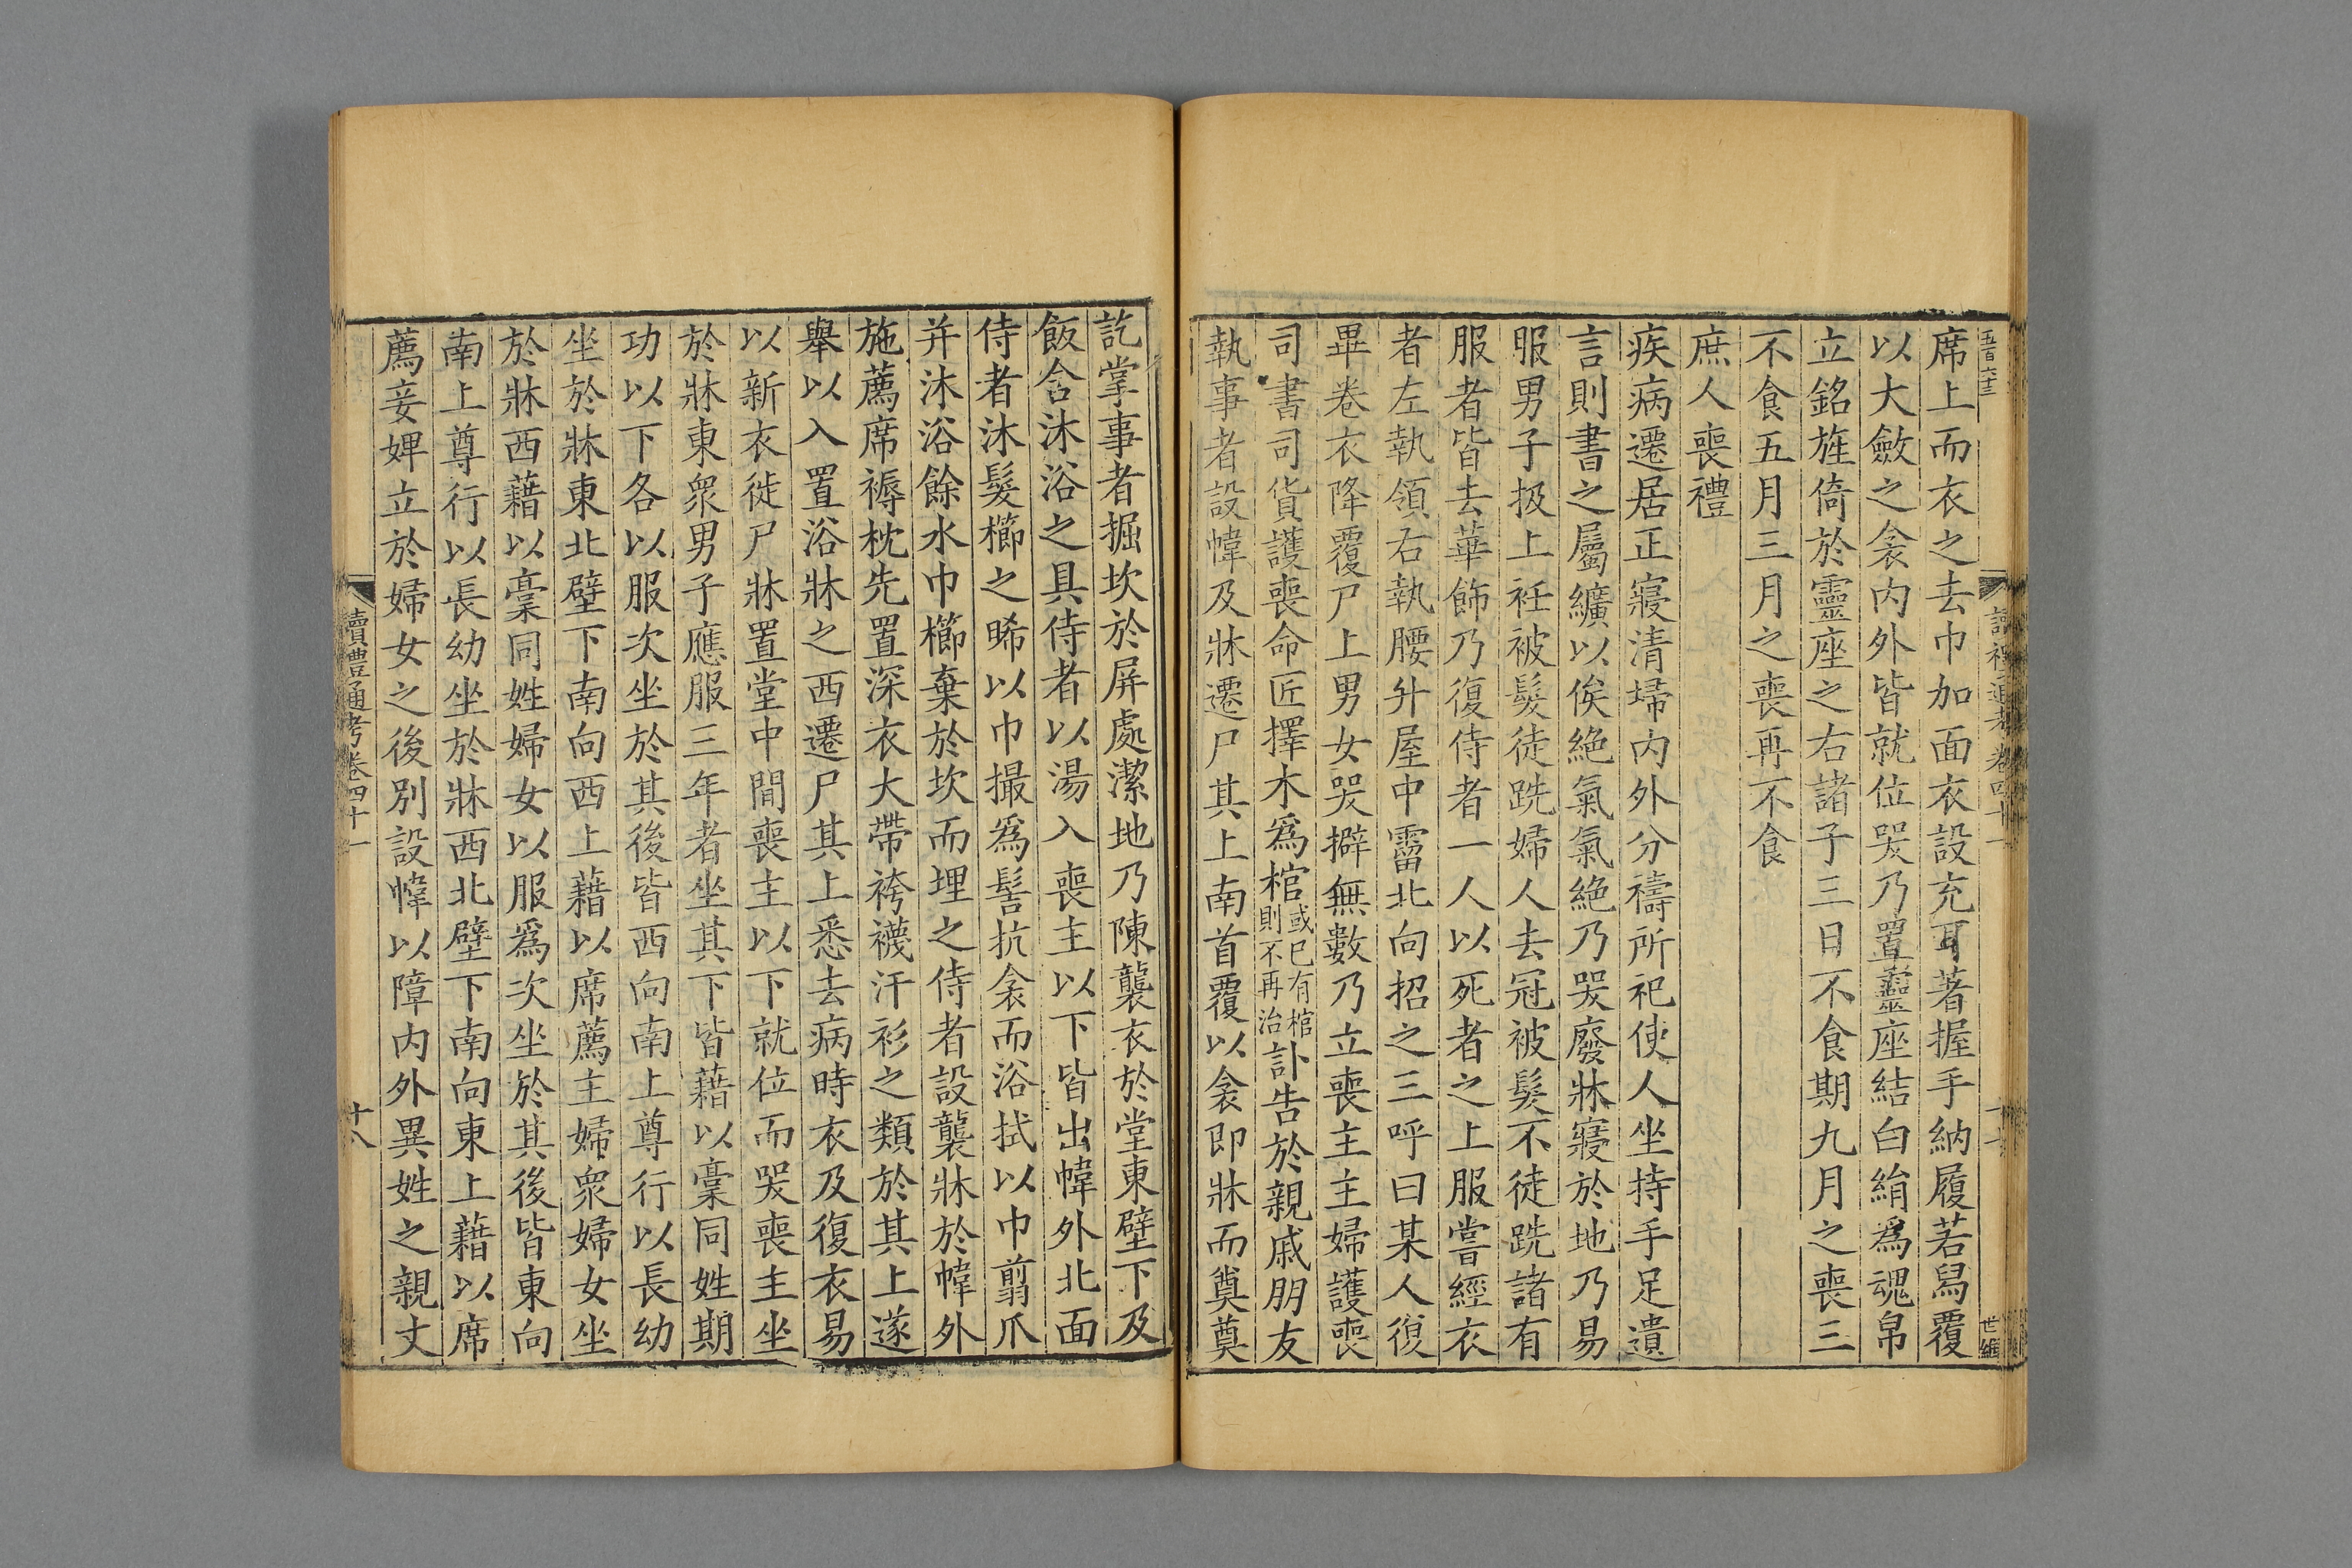 五百六十三
讀禮通考卷四十一
世綱
席上而衣之去巾加面衣設充耳著握手納履若舄覆
以大斂之衾內外皆就位哭乃置靈座結白絹爲魂帛
立銘旌倚於靈座之右諸子三日不食期九月之喪三
不食五月三月之喪再不食
庶人喪禮
疾病遷居正寢清埽內外分禱所祀使人坐持手足遺
言則書之屬纊以俟絕氣氣絕乃哭廢牀寢於地乃易
服男子扱上衽被髮徒跣婦人去冠被髮不徒跣諸有
服者皆去華飾乃復侍者一人以死者之上服嘗經衣
者左執領右執腰升屋中霤北向招之三呼曰某人復
畢卷衣降覆尸上男女哭擗無數乃立喪主主婦護喪
司書司貨護喪命匠擇木爲棺或已有棺則不再治訃告於親戚朋友
執事者設幃及牀遷尸其上南首覆以衾即牀而奠奠
訖掌事者掘坎於屏處潔地乃陳襲衣於堂東壁下及
飯含沐浴之具侍者以湯入喪主以下皆出幃外北面
侍者沐髮櫛之晞以巾撮爲髻抗衾而浴拭以巾翦爪
并沐浴餘水巾櫛棄於坎而埋之侍者設襲牀於幃外
施薦席褥枕先置深衣大帶袴襪汗衫之類於其上遂
舉以入置浴牀之西遷尸其上悉去病時衣及復衣易
以新衣徙尸牀置堂中間喪主以下就位而哭喪主坐
於牀東眾男子應服三年者坐其下皆藉以稾同姓期
功以下各以服次坐於其後皆西向南上尊行以長幼
坐於牀東北壁下南向西上藉以席薦主婦眾婦女坐
於牀西藉以稾同姓婦女以服爲次坐於其後皆東向
南上尊行以長幼坐於牀西北壁下南向東上藉以席
薦妾婢立於婦女之後別設幃以障內外異姓之親丈
讀禮通考卷四十一
十八